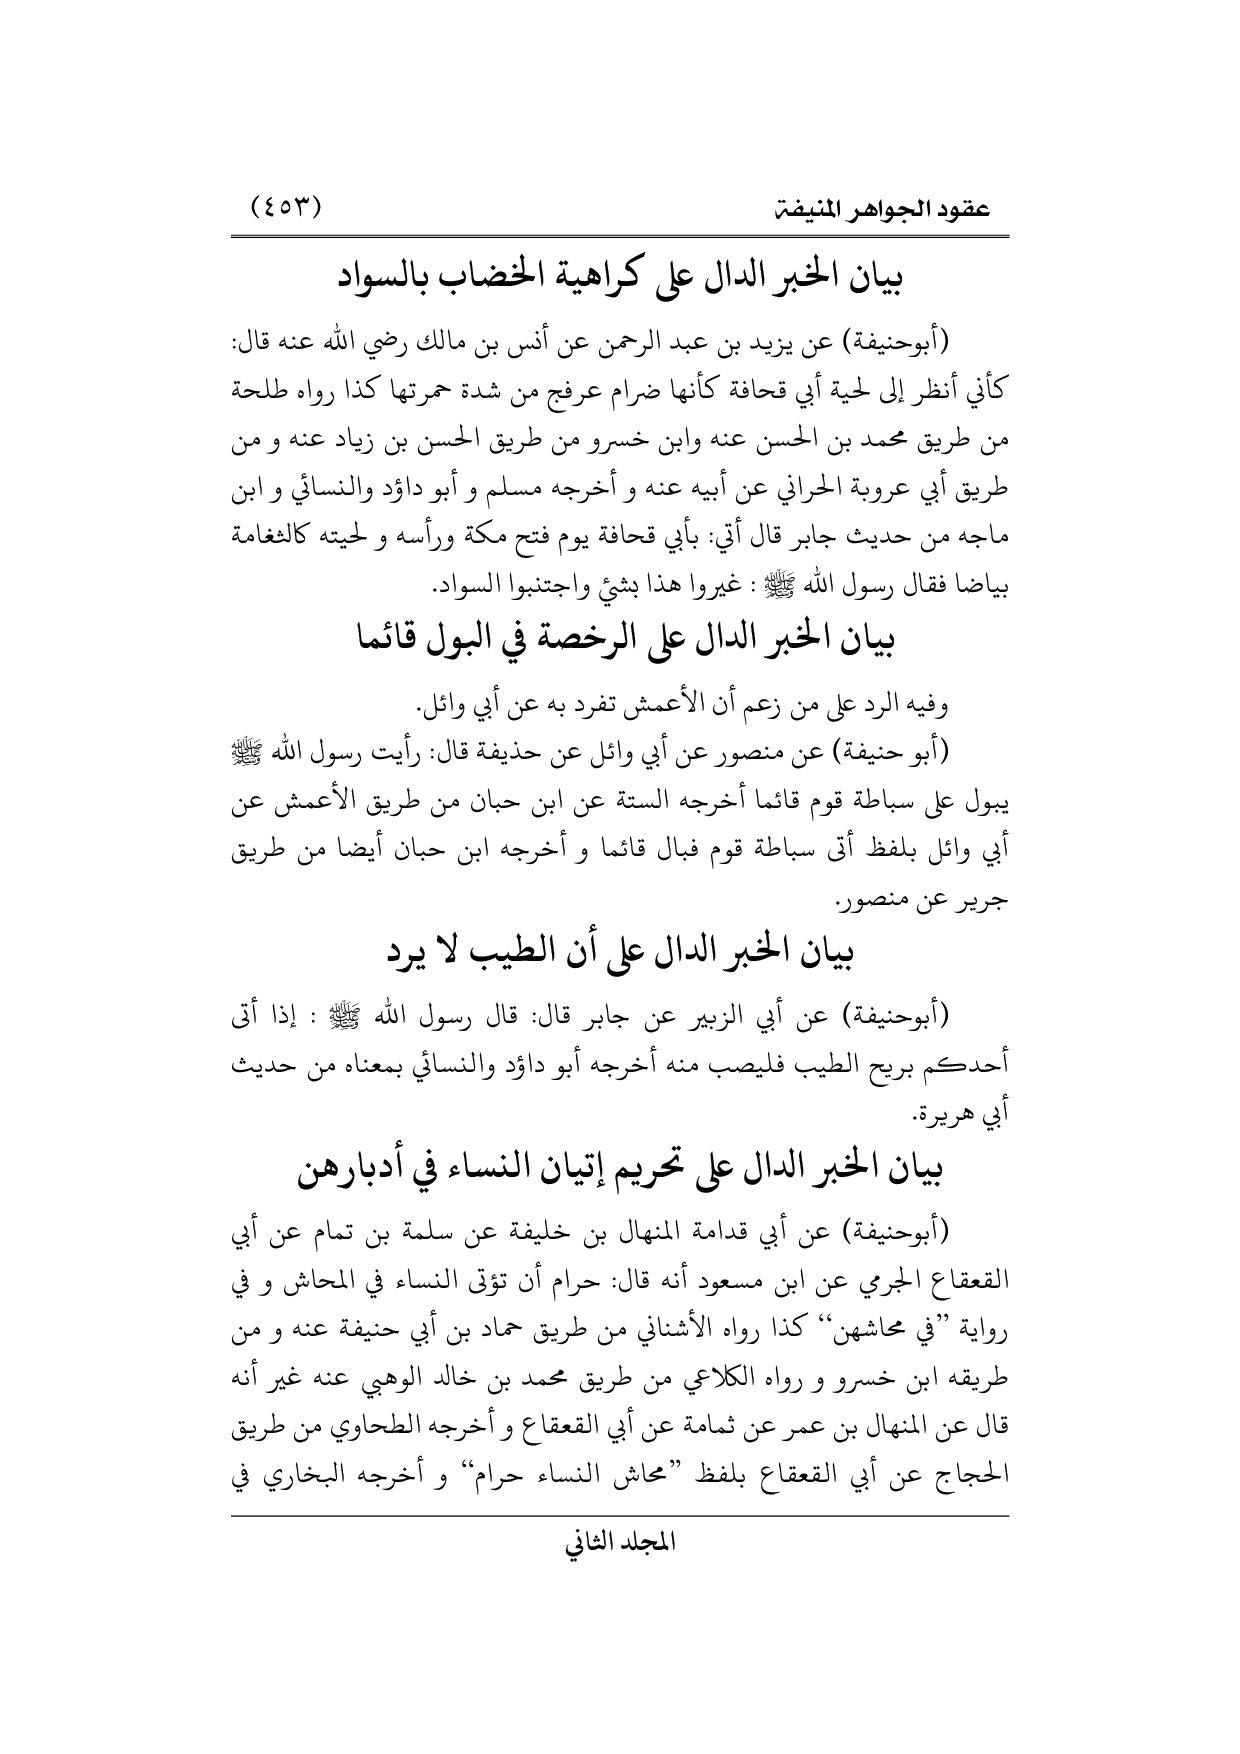 عقود الجواهر المنيفة (٤٥٣)
بيان الخبر الدال على كراهية الخضاب بالسواد
(أبوحنيفة) عن يزيد بن عبد الرحمن عن أنس بن مالك رضي الله عنه قال:
كأني أنظر إلى لحية أبي قحافة كأنها ضرام عرفج من شدة حمرتها كذا رواه طلحة
من طريق محمد بن الحسن عنه وابن خسرو من طريق الحسن بن زياد عنه و من
طريق أبي عروبة الحراني عن أبيه عنه و أخرجه مسلم و أبو داؤد والنسائي و ابن
ماجه من حديث جابر قال أتي: بأبي قحافة يوم فتح مكة ورأسه و لحيته كالثغامة
بياضا فقال رسول الله ﷺ : غيروا هذا بشئ واجتنبوا السواد.
بيان الخبر الدال على الرخصة في البول قائما
وفيه الرد على من زعم أن الأعمش تفرد به عن أبي وائل.
(أبو حنيفة) عن منصور عن أبي وائل عن حذيفة قال: رأيت رسول الله ﷺ
يبول على سباطة قوم قائما أخرجه الستة عن ابن حبان من طريق الأعمش عن
أبي وائل بلفظ أتى سباطة قوم فبال قائما و أخرجه ابن حبان أيضا من طريق
جرير عن منصور.
بيان الخبر الدال على أن الطيب لا يرد
(أبوحنيفة) عن أبي الزبير عن جابر قال: قال رسول الله ﷺ : إذا أتى
أحدكم بريح الطيب فليصب منه أخرجه أبو داؤد والنسائي بمعناه من حديث
أبي هريرة.
بيان الخبر الدال على تحريم إتيان النساء في أدبارهن
(أبوحنيفة) عن أبي قدامة المنهال بن خليفة عن سلمة بن تمام عن أبي
القعقاع الجرمي عن ابن مسعود أنه قال: حرام أن تؤتى النساء في المحاش و في
رواية ’’في محاشهن‘‘ كذا رواه الأشناني من طريق حماد بن أبي حنيفة عنه و من
طريقه ابن خسرو و رواه الكلاعي من طريق محمد بن خالد الوهبي عنه غير أنه
قال عن المنهال بن عمر عن ثمامة عن أبي القعقاع و أخرجه الطحاوي من طريق
الحجاج عن أبي القعقاع بلفظ ’’محاش النساء حرام‘‘ و أخرجه البخاري في
المجلد الثاني